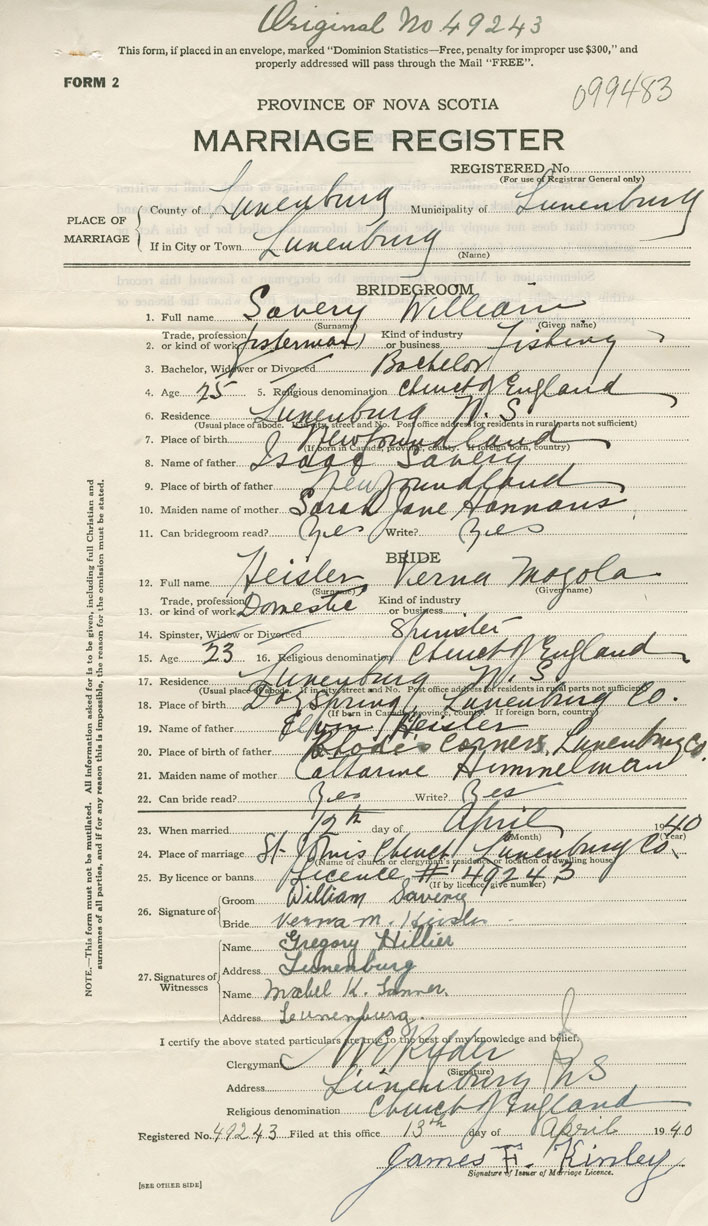 Original No 49243
This form, if placed in an envelope, marked "Dominion Statistics—Free, penalty for improper use $300," and
properly addressed will pass through the Mail "FREE".
FORM 2
099483
PROVINCE OF NOVA SCOTIA
MARRIAGE REGISTER
REGISTERED No.
(For use of Registrar General only)
PLACE OF MARRIAGE
County of Lunenburg Municipality of Lunenburg
If in City or Town Lunenburg
(Name)
BRIDEGROOM
1. Full name Savery William
(Surname) (Given name)
2. Trade, profession or kind of work fisterman Kind of industry or business Fishing
3. Bachelor, Widower or Divorced Bachelor
4. Age 25 5. Religious denomination Church of England
6. Residence Lunenburg N. S
(Usual place of abode. If in city, street and No. Post office address for residents in rural parts not sufficient)
7. Place of birth Newfoundland
(If born in Canada, province, county. If foreign born, country)
8. Name of father Isaac Savery
9. Place of birth of father Newfoundland
10. Maiden name of mother Sarah Jane Hannans
11. Can bridegroom read? Yes Write? Yes
BRIDE
12. Full name Heisler, Verna Magola
(Surname) (Given name)
13. Trade, profession or kind of work Domestic Kind of industry or business
14. Spinster, Widow or Divorced Spinster
15. Age 23 16. Religious denomination Church of England
17. Residence Lunenburg N. S
(Usual place of abode. If in city, street and No. Post office address for residents in rural parts not sufficient)
18. Place of birth Day Spring, Lunenburg Co.
(If born in Canada, province, county. If foreign born, country)
19. Name of father Elvin Heisler
20. Place of birth of father Rhodes Corners, Lunenburg Co.
21. Maiden name of mother Catharine Himmelman
22. Can bride read? Yes Write? Yes
23. When married 12th day of April 1940
(Month) (Year)
24. Place of marriage St- Church Lunenburg Co.
(Name of church or clergyman's residence or location of dwelling house)
25. By licence or banns Licence # 49243
(If by licence, give number)
26. Signature of Groom William Savery
Bride Verna M. Heisler
27. Signatures of Witnesses Name Gregory Hillier
Address Lunenburg
Name Mabel K. Tanner.
Address Lunenburg.
I certify the above stated particulars are true to the best of my knowledge and belief.
Clergyman W E Ryder
(Signature)
Address Lunenburg NS
Religious denomination Church of England
Registered No. 49243 Filed at this office 13th day of April 1940
James F. Kinley
Signature of Issuer of Marriage Licence.
[SEE OTHER SIDE]
NOTE.—This form must not be mutilated. All information asked for is to be given, including full Christian and
surnames of all parties, and if for any reason this is impossible, the reason for the omission must be stated.